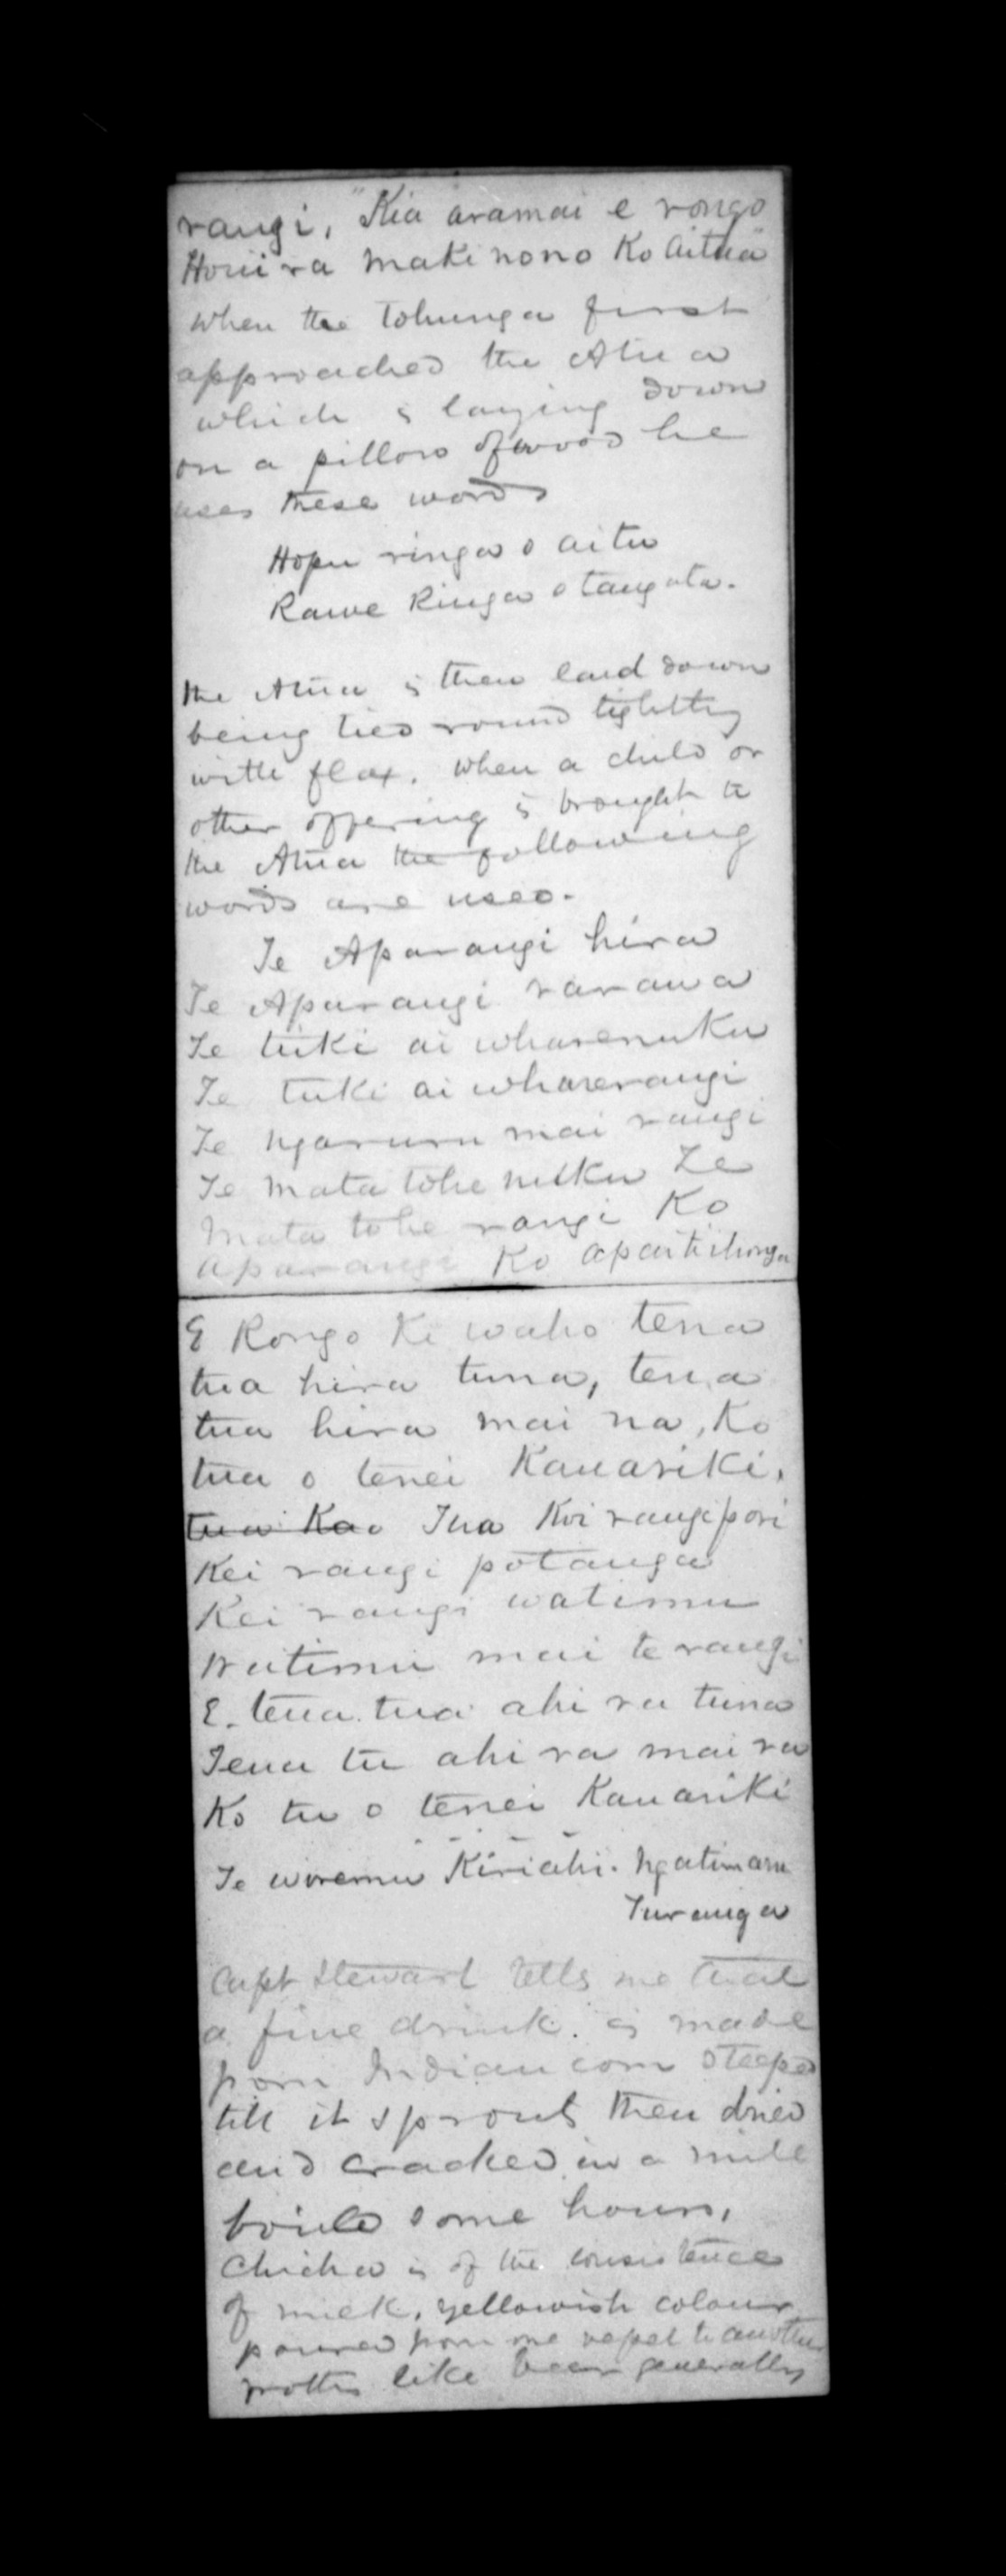 rangi, "Kia aramai e rongo
Houi ra maki nono Ko Aitua"
When the Tohunga first
approached the Atua
which is laying down
on a pillow of wood he
uses these words
Hopu ringa o aitu
Rawe Ringa o tangata.
the Atua is then laid down
being tied round tightly
with flax. When a child or
other offering is brought to
the Atua the following
words are used.
Te Aparangi hira
Te Aparangi rarawa
Te tuki ai wharenuku
Te tuki ai wharerangi
Te Ngaruru mai rangi
Te Mata tohe nuku Te
Mata tohe rangi Ko
Aparangi Ko apaitihonga
E Rongo Ki waho tena
tua hira tuna, tena
tua hira mai na, Ko
tua o tenei Kauariki.
tua Kao Tua Koi rangipori
Kei rangi potanga
Kei rangi watimu
Watimu mai te rangi
E. tena tua ahi ra tuna
Tena tu ahi ra mai ra
Ko tu o tenei Kauariki
Te woremu Kiriahi. Ngatimaru
Turanga
Capt Stewart tells me that
a fine drink is made
from Indian corn steeped
till it sprouts then dried
and cracked in a mill
boiled some hours,
Chicha is of the consistence
of milk, yellowish colour
poured from one vessel to another
froths like beer generally